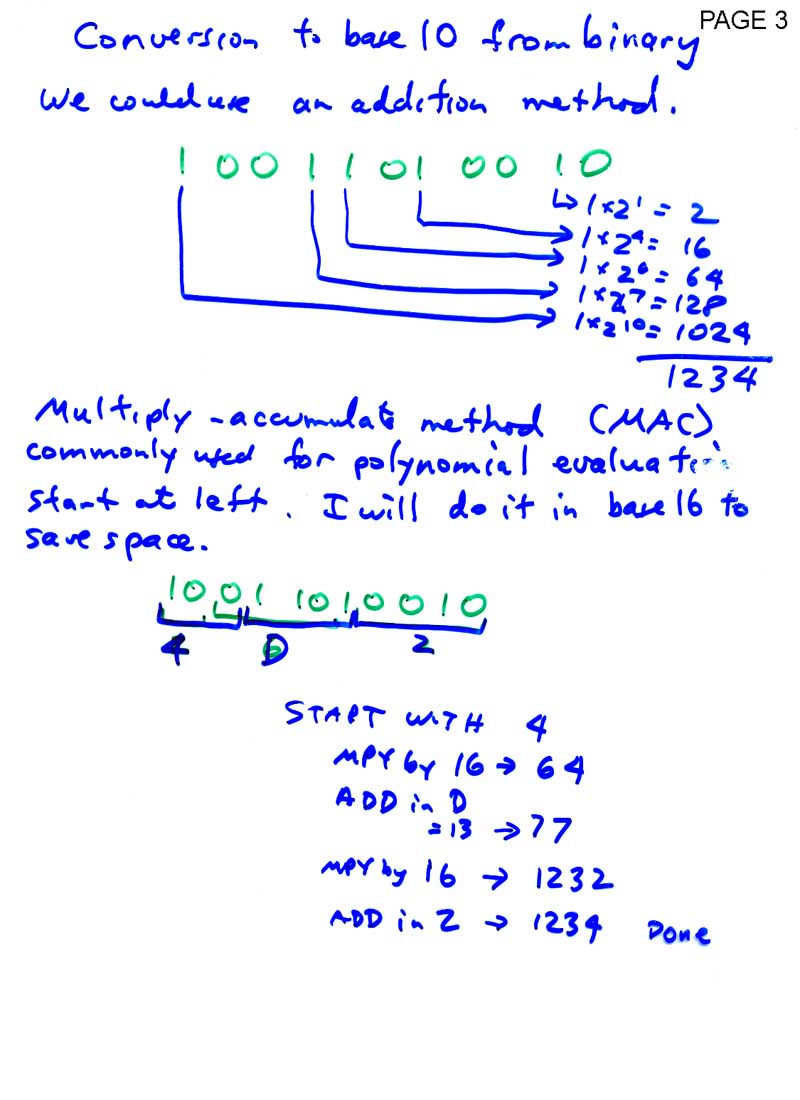 PAGE 3
Conversion to base 10 from binary
We could use an addition method.
1 0 0 1 1 0 1 0 0 1 0
1×2^1 = 2
1×2^4 = 16
1×2^6 = 64
1×2^7 = 128
1×2^10 = 1024
1234
Multiply-accumulate method (MAC)
commonly used for polynomial evaluati
start at left. I will do it in base 16 to
save space.
1 0 0 1 1 0 1 0 0 1 0
4 D 2
START WITH 4
MPY by 16 → 64
ADD in D
= 13 → 77
MPY by 16 → 1232
ADD in 2 → 1234 Done